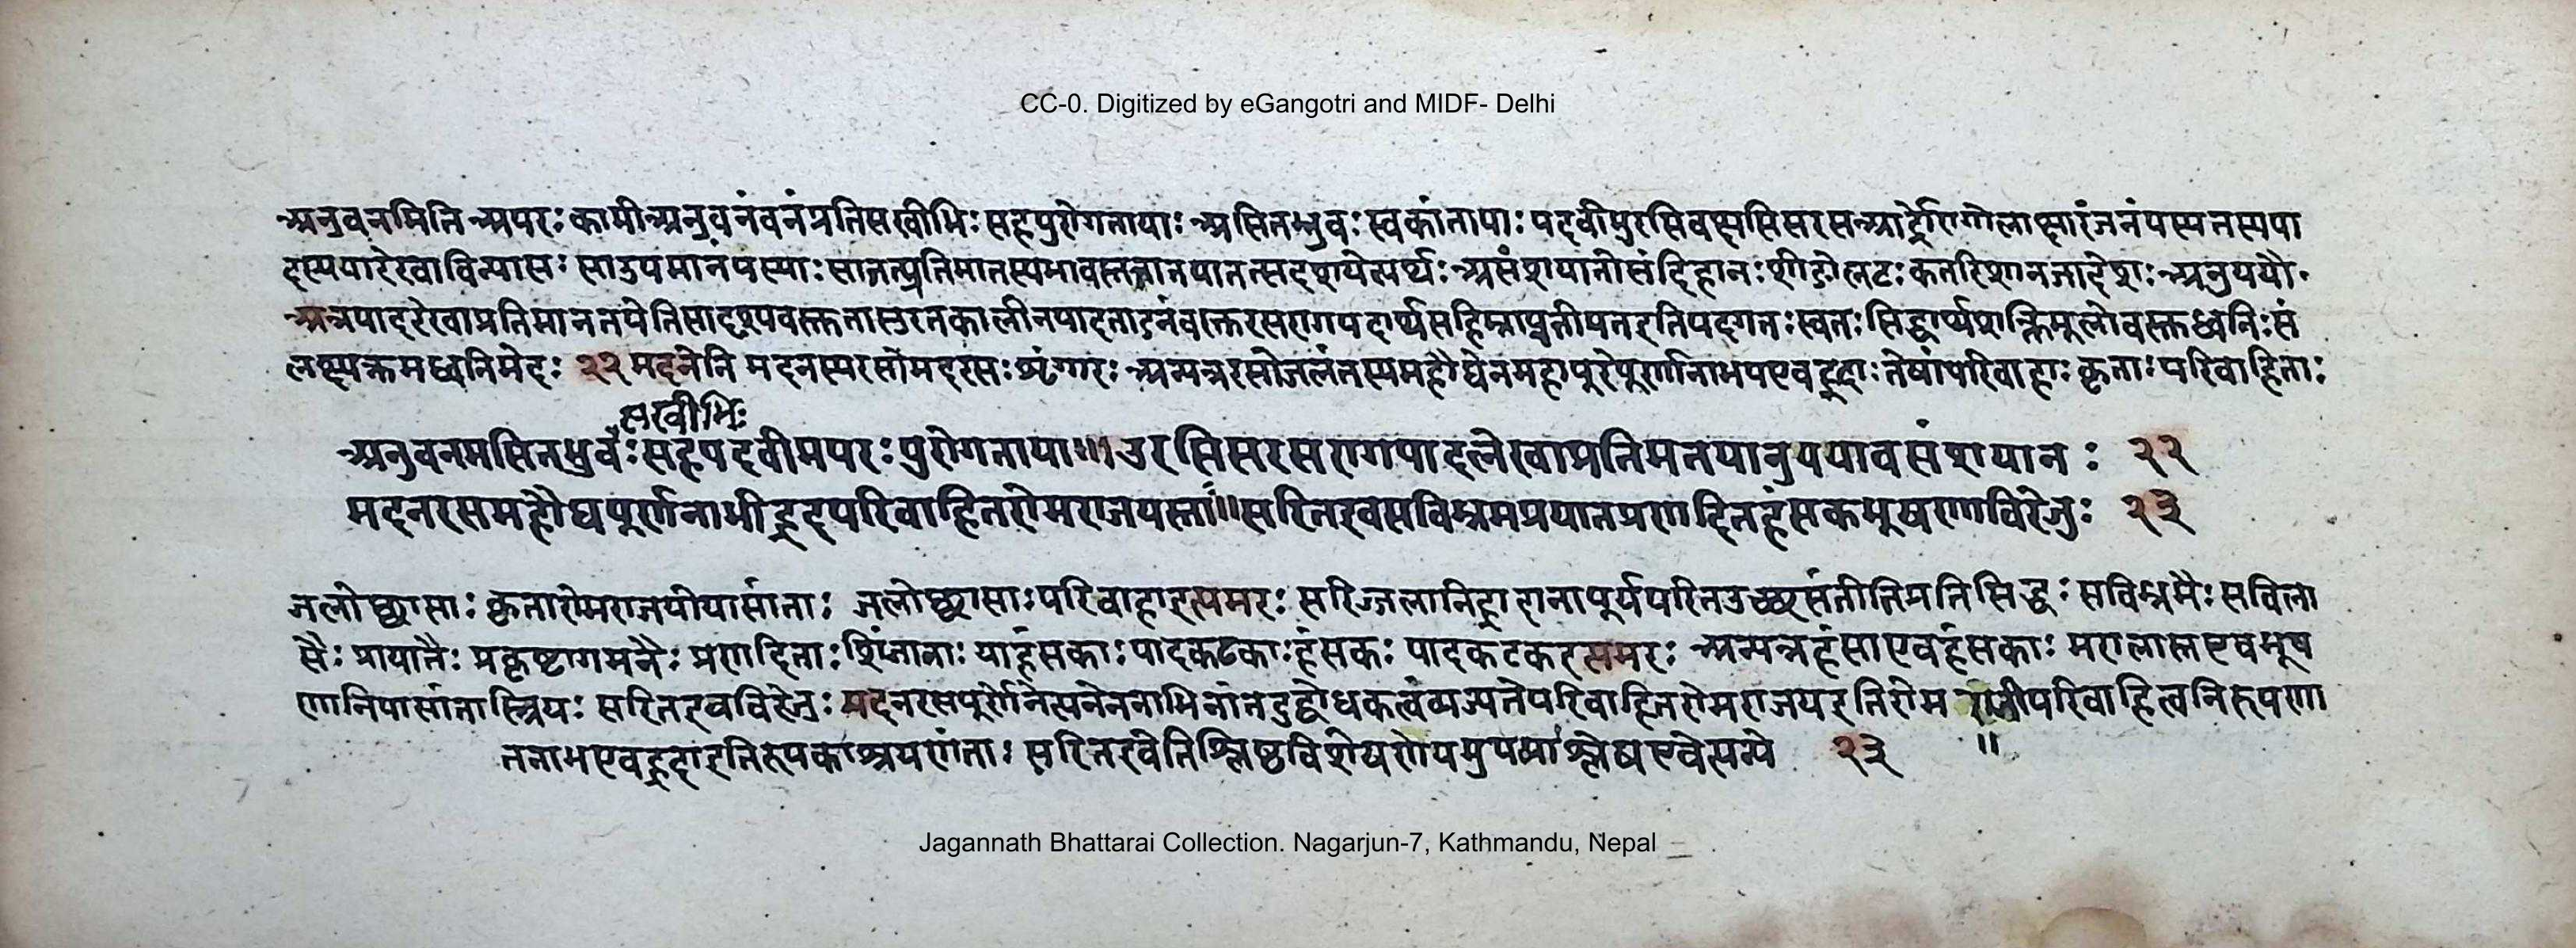 CC-0. Digitized by eGangotri and MIDF- Delhi
अनुवनमिति अपरः कामी अनुवनं वनं प्रति सखीभिः सह पुरोगतायाः असितभ्रुवः स्वकांतायाः पदवीमुरसि वक्षसि सरस आर्द्रो रागो लाक्षारंजनं यस्य तस्य पा
दस्य या रेखा विन्यासः सा उपमानं यस्याः सा तत्प्रतिमा तस्य भावस्तत्ता तया तत्सदृशयेत्यर्थः असंशयानोसंदिहानः शीङो लटः कर्तरि शानजादेशः अनुययौ
अत्र पादरेखाप्रतिमानतयेति सादृश्यवस्तुना
लक्ष्यक्रमध्वनिभेदः २२ मदनेति मदनस्य रसो मदरसः शृंगारः अन्यत्र रसो जलं तस्य महौघेन महापूरेण पूर्णा नाभय एव ह्रदाः तेषां परिवाहाः कृताः परिवाहिताः
सखीभिः
अनुवनमसितभ्रुवः सह पदवीमपरः पुरोगताया ॥ उरसि सरसरागपादलेखाप्रतिमतयानुययावसंशयानः २२
मदनरसमहौघपूर्णनाभीह्रदपरिवाहितरोमराजयस्ताः ॥ सरित इव सविभ्रमप्रयातप्रणादितहंसकभूषणा विरेजुः २३
जलोछ्वासाः कृता रोमराजयो यासां ताः जलोछ्वासाः परिवाहा इत्यमरः सरिज्जलानि ह्रदानापूर्य परित उच्छ्वसंतीति प्रतिसिद्धः सविभ्रमैः सविला
सैः प्रायानैः प्रकृष्टागमनैः प्रणादिताः शिंजाताः या हंसकाः पादकटकाः हंसकः पादकटक इत्यमरः अन्यत्र हंसा एव हंसकाः मरालास्त एव भूष
णानि यासां ता स्त्रियः सरित इव विरेजुः मदनरसपूर्णेनेत्यनेन नाभिनां तदुद्बोधकत्वं व्यज्यते परिवाहितरोमराजय इति रोमराजीपरिवाहित्वनिरूपणा
त नाभय एव ह्रदा इति रूपकाश्रयणं ताः सरित इवेति श्लिष्टविशेषणेयमुपमा श्लेष एवेत्यन्ये २३ ॥
Jagannath Bhattarai Collection. Nagarjun-7, Kathmandu, Nepal